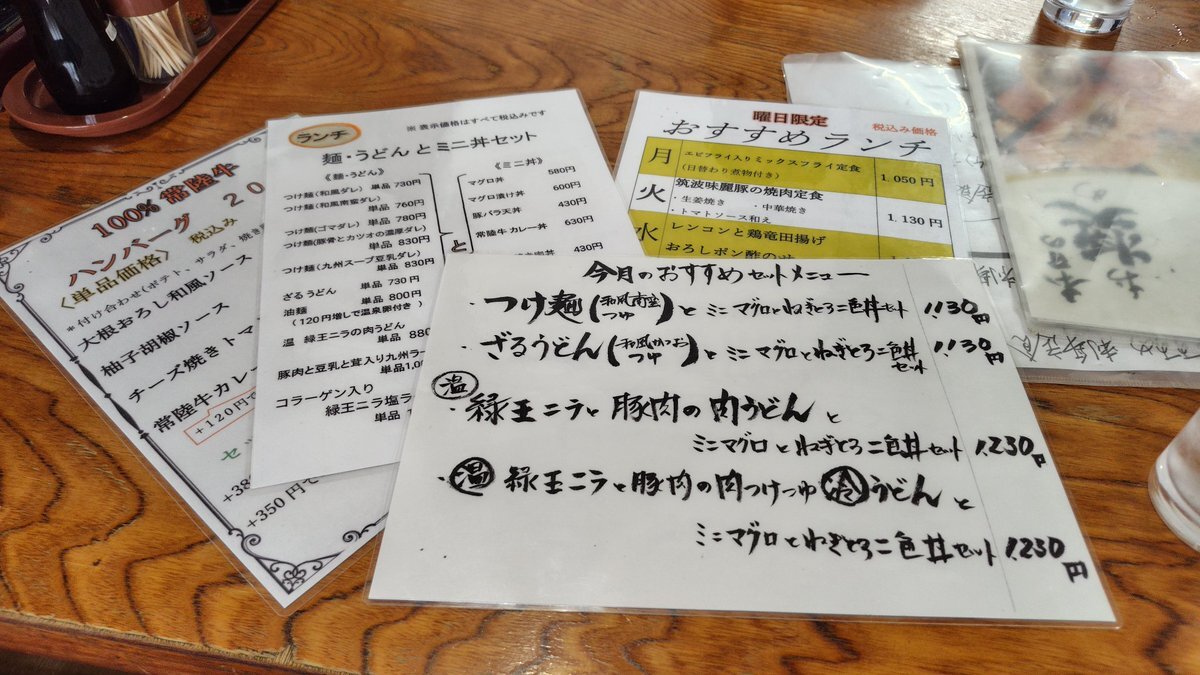 100% 常陸牛
ハンバーグ 20
〈単品価格〉 税込み
*付け合わせ(ポテト、サラダ、焼き
大根おろし和風ソース
柚子胡椒ソース
チーズ焼きトマ
常陸牛カレー
+120円で
+38
+350円で
ランチ
※ 表示価格はすべて税込みです
麺・うどんとミニ丼セット
《麺・うどん》
つけ麺(和風ダレ) 単品 730円
つけ麺(和風南蛮ダレ)
単品 760円
つけ麺(ゴマダレ) 単品 780円
つけ麺(豚骨とカツオの濃厚ダレ)
単品 830円
つけ麺(九州スープ豆乳ダレ)
単品 830円
ざるうどん 単品 730円
油麺 単品 800円
(120円増しで温泉卵付き)
温 緑王ニラの肉うどん
単品 880
豚肉と豆乳と茸入り九州ラー
単品1,0
コラーゲン入り
緑王ニラ塩ラ
単品 1
と
《ミニ丼》
マグロ丼 580円
マグロ漬け丼 600円
豚バラ天丼 430円
常陸牛カレー丼 630円
430円
曜日限定 税込み価格
おすすめランチ
月 エビフライ入りミックスフライ定食
(日替わり煮物付き) 1.050円
火 筑波味麗豚の焼肉定食
・生姜焼き ・中華焼き
・トマトソース和え 1.130円
水 レンコンと鶏竜田揚げ
おろしポン酢のせ
今月のおすすめセットメニュー
・つけ麺(和風南蛮つゆ)とミニマグロとねぎとろ二色丼セット 1,130円
・ざるうどん(和風かつおつゆ)とミニマグロとねぎとろ二色丼セット 1,130円
・温 緑王ニラと豚肉の肉うどんと
ミニマグロとねぎとろ二色丼セット 1,230円
・温 緑王ニラと豚肉の肉つけつゆ 冷 うどんと
ミニマグロとねぎとろ二色丼セット 1,230円